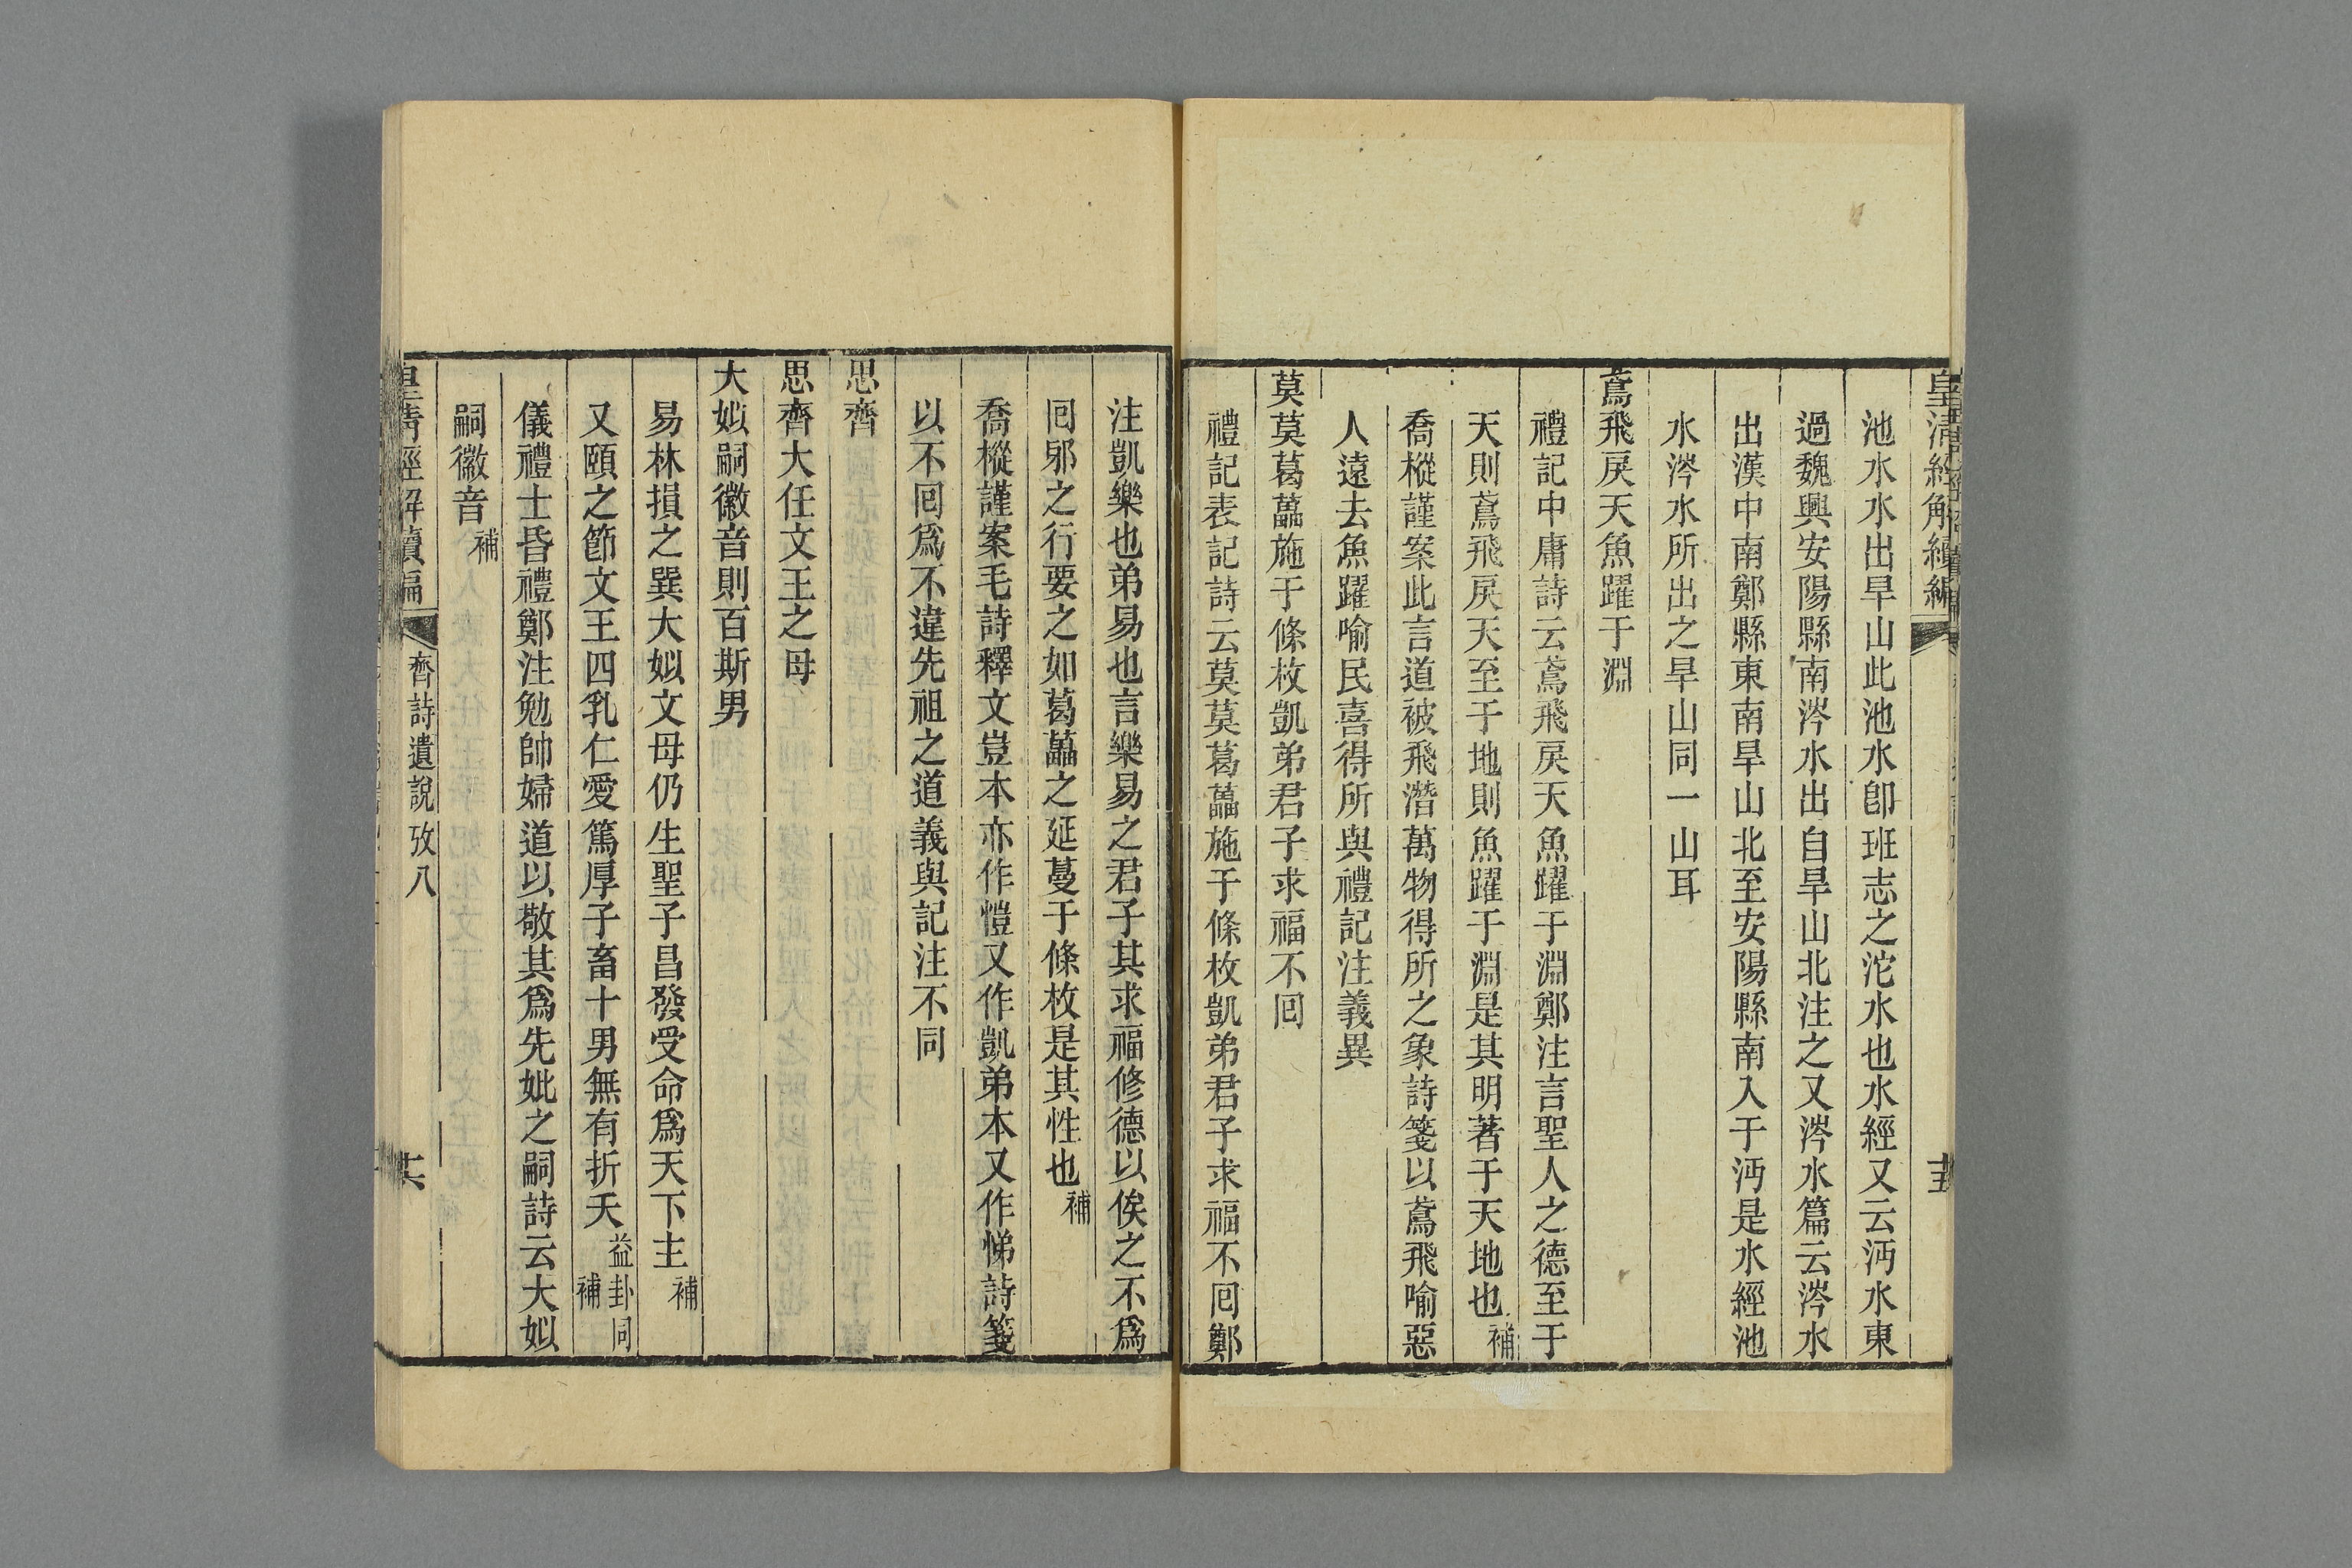 皇清經解續編
十五
池水水出旱山此池水卽班志之沱水也水經又云沔水東
過魏興安陽縣南涔水出自旱山北注之又涔水篇云涔水
出漢中南鄭縣東南旱山北至安陽縣南入于沔是水經池
水涔水所出之旱山同一山耳
鳶飛戾天魚躍于淵
禮記中庸詩云鳶飛戾天魚躍于淵鄭注言聖人之德至于
天則鳶飛戾天至于地則魚躍于淵是其明著于天地也補
喬樅謹案此言道被飛潛萬物得所之象詩箋以鳶飛喻惡
人遠去魚躍喻民喜得所與禮記注義異
莫莫葛藟施于條枚凱弟君子求福不囘
禮記表記詩云莫莫葛藟施于條枚凱弟君子求福不囘鄭
注凱樂也弟易也言樂易之君子其求福修德以俟之不爲
囘邪之行要之如葛藟之延蔓于條枚是其性也補
喬樅謹案毛詩釋文豈本亦作愷又作凱弟本又作悌詩箋
以不囘爲不違先祖之道義與記注不同
思齊
思齊大任文王之母
大姒嗣徽音則百斯男
易林損之巽大姒文母仍生聖子昌發受命爲天下主補
又頤之節文王四乳仁愛篤厚子畜十男無有折夭益卦同補
儀禮士昏禮鄭注勉帥婦道以敬其爲先妣之嗣詩云大姒
嗣徽音補
皇清經解續編
齊詩遺說攷八
十六